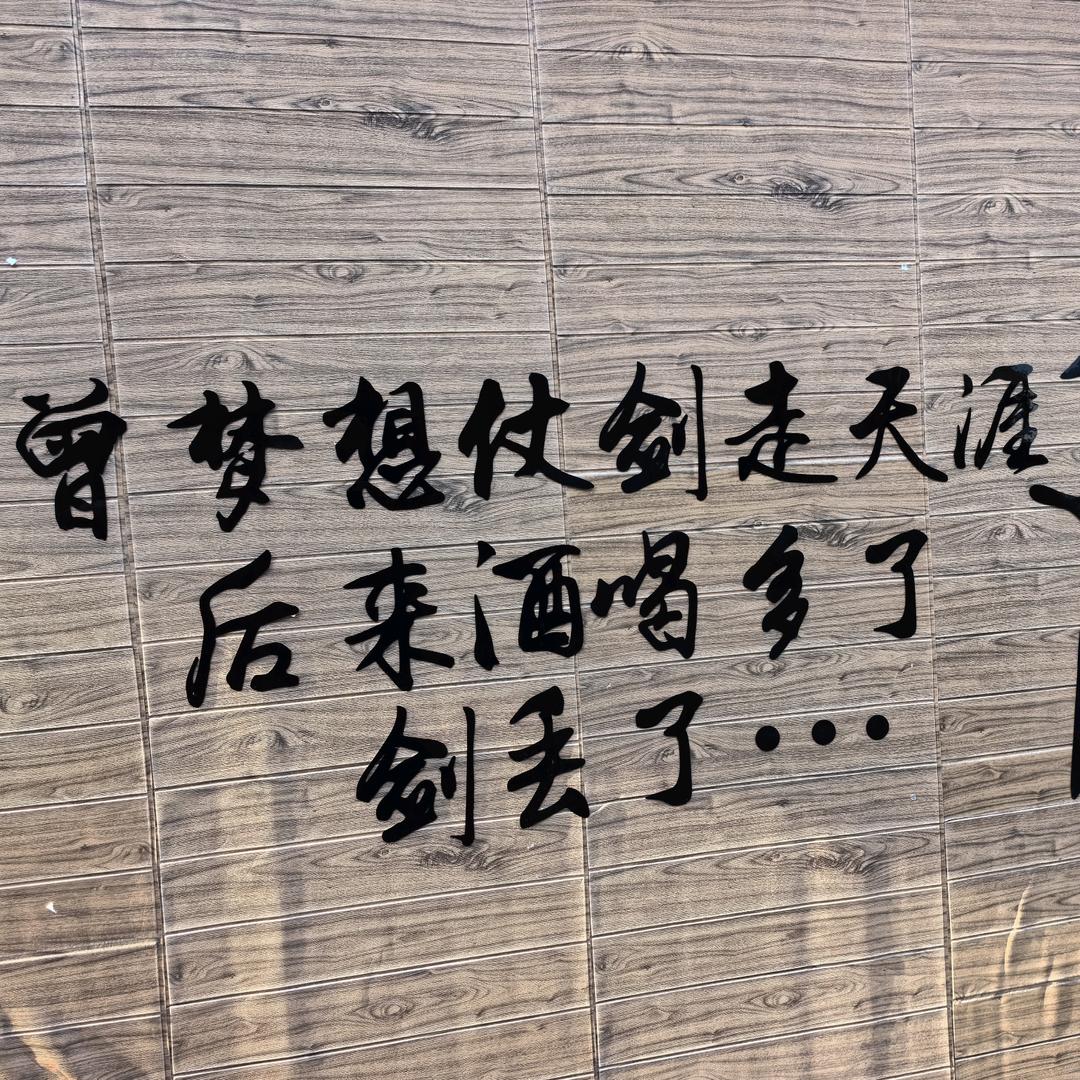 曾梦想仗剑走天涯
后来酒喝多了
剑丢了···